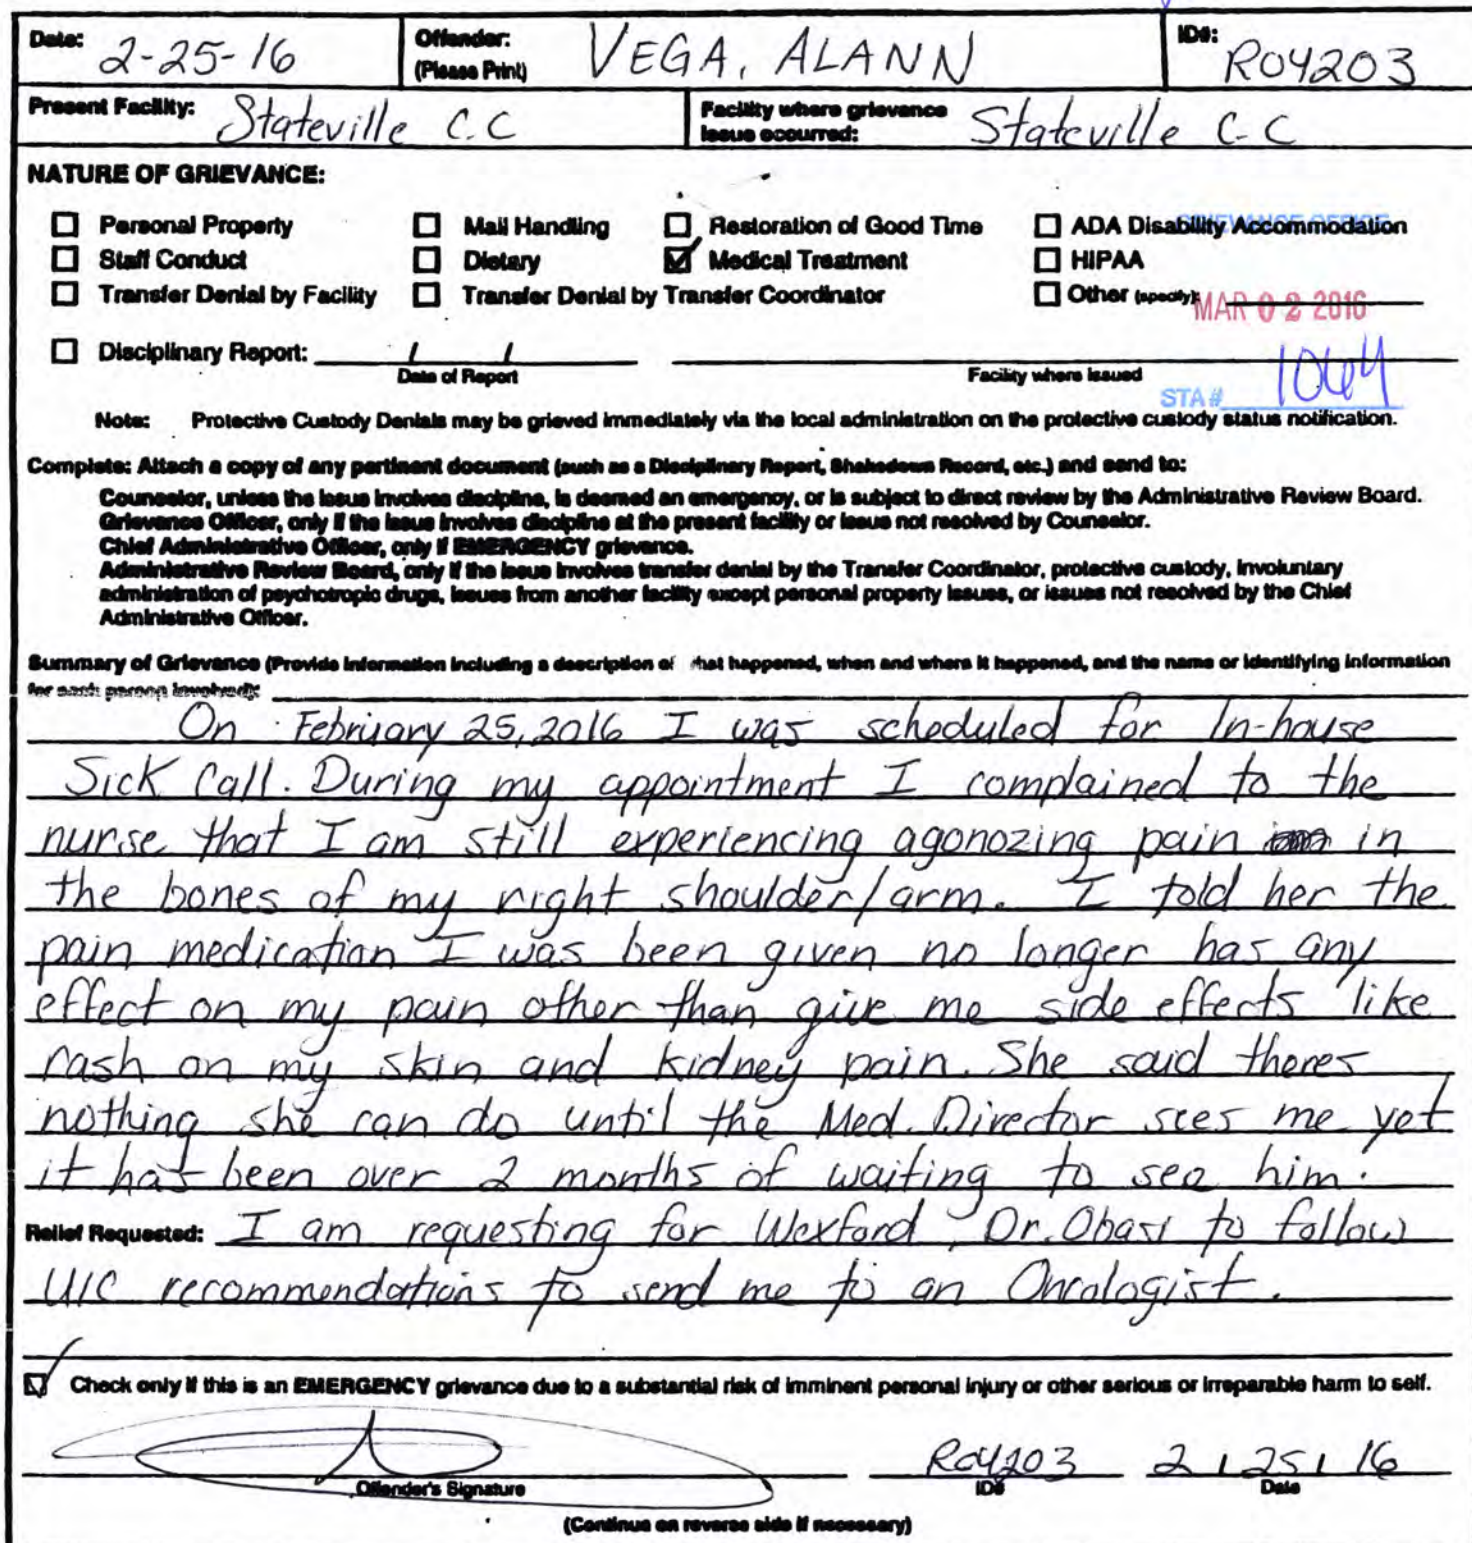 Date: 2-25-16 Offender: (Please Print) VEGA, ALANN ID#: R04203
Present Facility: Stateville C.C Facility where grievance issue occurred: Stateville C-C
NATURE OF GRIEVANCE:
☐ Personal Property ☐ Mail Handling ☐ Restoration of Good Time ☐ ADA Disability Accommodation
GRIEVANCE OFFICE
☐ Staff Conduct ☐ Dietary ☑ Medical Treatment ☐ HIPAA
☐ Transfer Denial by Facility ☐ Transfer Denial by Transfer Coordinator ☐ Other (specify):
MAR 02 2016
☐ Disciplinary Report: / /
Date of Report Facility where issued
STA# 1064
Note: Protective Custody Denials may be grieved immediately via the local administration on the protective custody status notification.
Complete: Attach a copy of any pertinent document (such as a Disciplinary Report, Shakedown Record, etc.) and send to:
Counselor, unless the issue involves discipline, is deemed an emergency, or is subject to direct review by the Administrative Review Board.
Grievance Officer, only if the issue involves discipline at the present facility or issue not resolved by Counselor.
Chief Administrative Officer, only if EMERGENCY grievance.
Administrative Review Board, only if the issue involves transfer denial by the Transfer Coordinator, protective custody, involuntary
administration of psychotropic drugs, issues from another facility except personal property issues, or issues not resolved by the Chief
Administrative Officer.
Summary of Grievance (Provide information including a description of what happened, when and where it happened, and the name or identifying information
for each person involved):
On February 25, 2016 I was scheduled for In-house
Sick Call. During my appointment I complained to the
nurse that I am still experiencing agonozing pain in
the bones of my right shoulder/arm. I told her the
pain medication I was been given no longer has any
effect on my pain other than give me side effects like
rash on my skin and kidney pain. She said theres
nothing she can do until the Med. Director sees me yet
it has been over 2 months of waiting to see him.
Relief Requested: I am requesting for Wexford, Dr. Obasi to follow
UIC recommendations to send me to an Oncologist.
☑ Check only if this is an EMERGENCY grievance due to a substantial risk of imminent personal injury or other serious or irreparable harm to self.
R04203 2 / 25 / 16
Offender's Signature ID# Date
(Continue on reverse side if necessary)